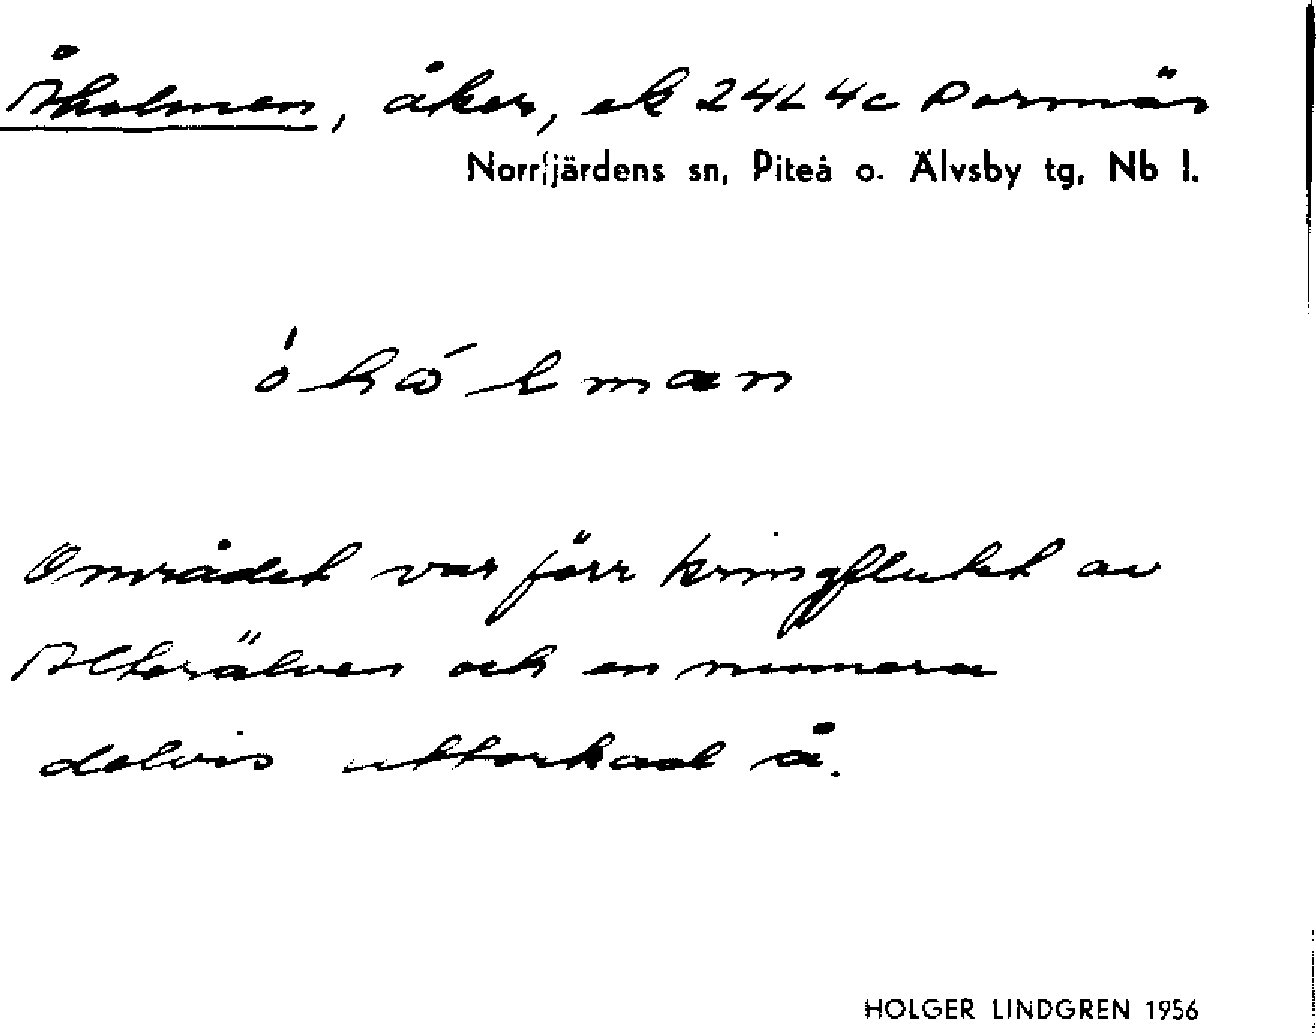 Åholmen, åker, ek 24L4c Porsnäs
Norrfjärdens sn, Piteå o. Älvsby tg, Nb l.
Området var förr kringflutet av
Alterälven och en numera
delvis uttorkad å.
HOLGER LINDGREN 1956